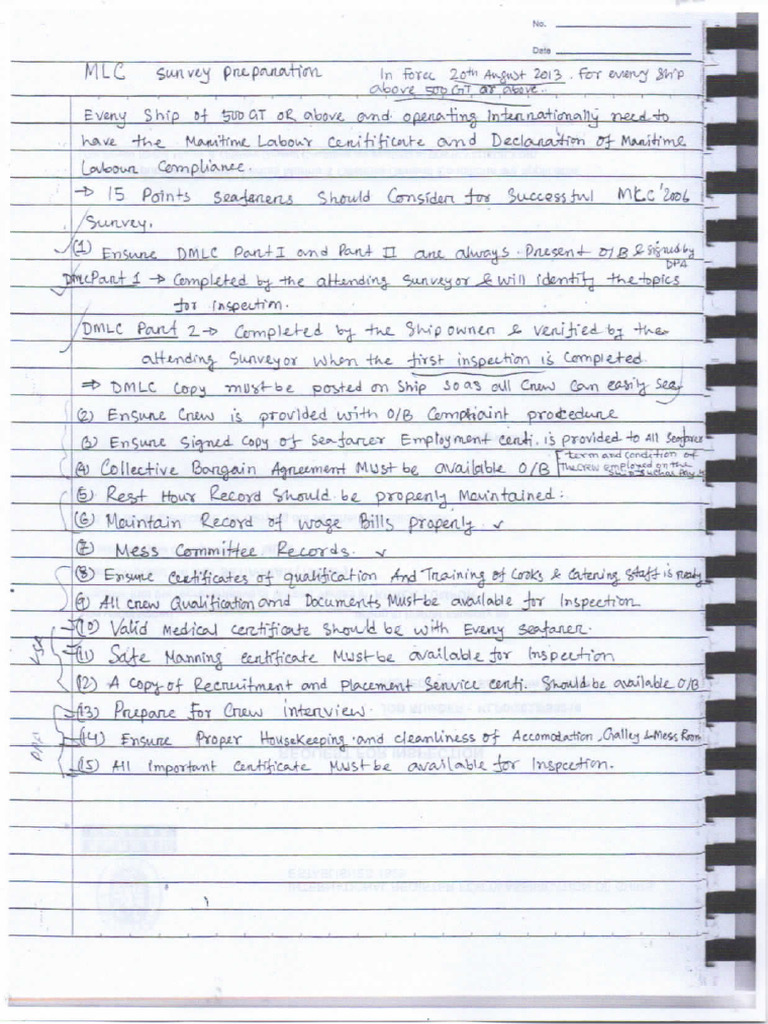 No.
Date
MLC survey preparation In Force 20th August 2013. For every ship
above 500 GT or above.
Every Ship of 500 GT OR above and operating Internationally need to
have the Maritime Labour cenitificate and Declaration of Maritime
Labour Compliance.
→ 15 Points seafarers Should Consider for Successful MLC'2006
Survey.
(1) Ensure DMLC Part I and Part II are always Present O/B & signed by
DPA
DMLC Part 1 → Completed by the attending surveyor & will identify the topics
for inspection.
DMLC Part 2 → Completed by the Shipowner & verified by the
attending Surveyor when the first inspection is completed.
⇒ DMLC Copy must be posted on Ship so as all Crew Can easily see
(2) Ensure Crew is provided with O/B Complaint procedure
(3) Ensure signed Copy of Seafarer Employment centi. is provided to All Seafarer
(4) Collective Bargain Agreement Must be available O/B [term and condition of
The crew employed on the
(5) Rest Hour Record Should be properly Maintained:
(6) Maintain Record of wage Bills properly. ✓
(7) Mess Committee Records. ✓
(8) Ensure certificates of qualification And Training of Cooks & Catering staff is ready
(9) All crew Qualification and Documents Must be available for Inspection
(10) Valid Medical certificate Should be with Every seafarer.
(11) Safe Manning certificate Must be available for Inspection
(12) A copy of Recruitment and Placement Service centi. Should be available O/B
(13) Prepare For Crew interview.
(14) Ensure Proper Housekeeping and cleanliness of Accomodation, Galley & Mess Room
(15) All Important Certificate Must be available for Inspection.